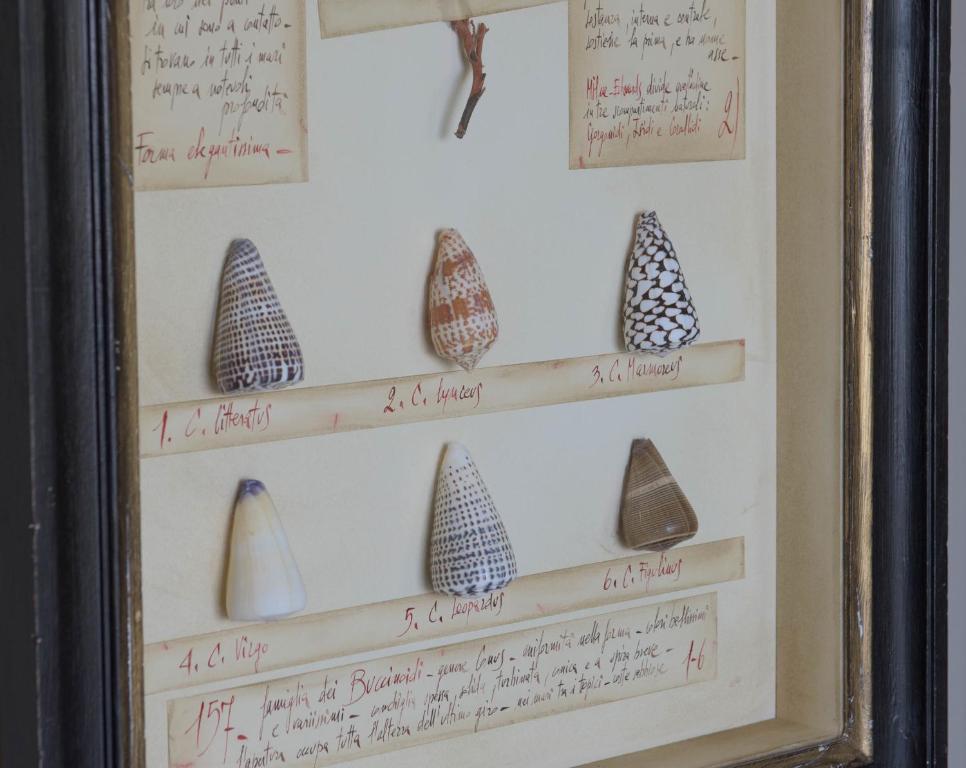 in cui sono a contatto.
Si trovano in tutti i mari
sempre a notevoli
profondità
Forma elegantissima -
sostanza, interna e centrale,
sostiene la prima, e ha nome
asse -
Milne-Edwards divide
in tre scompartimenti naturali:
Gorgonidi, Isidi e Corallidi 2)
1. C. litteratus
2. C. lynceus
3. C. Marmoreus
4. C. Virgo
5. C. Leopardus
6. C. Figulinus
157- famiglia dei Buccinoidi - genere Conus - uniformità nella forma - colori bellissimi
e variissimi - conchiglia spessa, solida, turbinata, conica e a spira breve -
l'apertura occupa tutta l'altezza dell'ultimo giro - nei mari tra i tropici - coste sabbiose 1-6